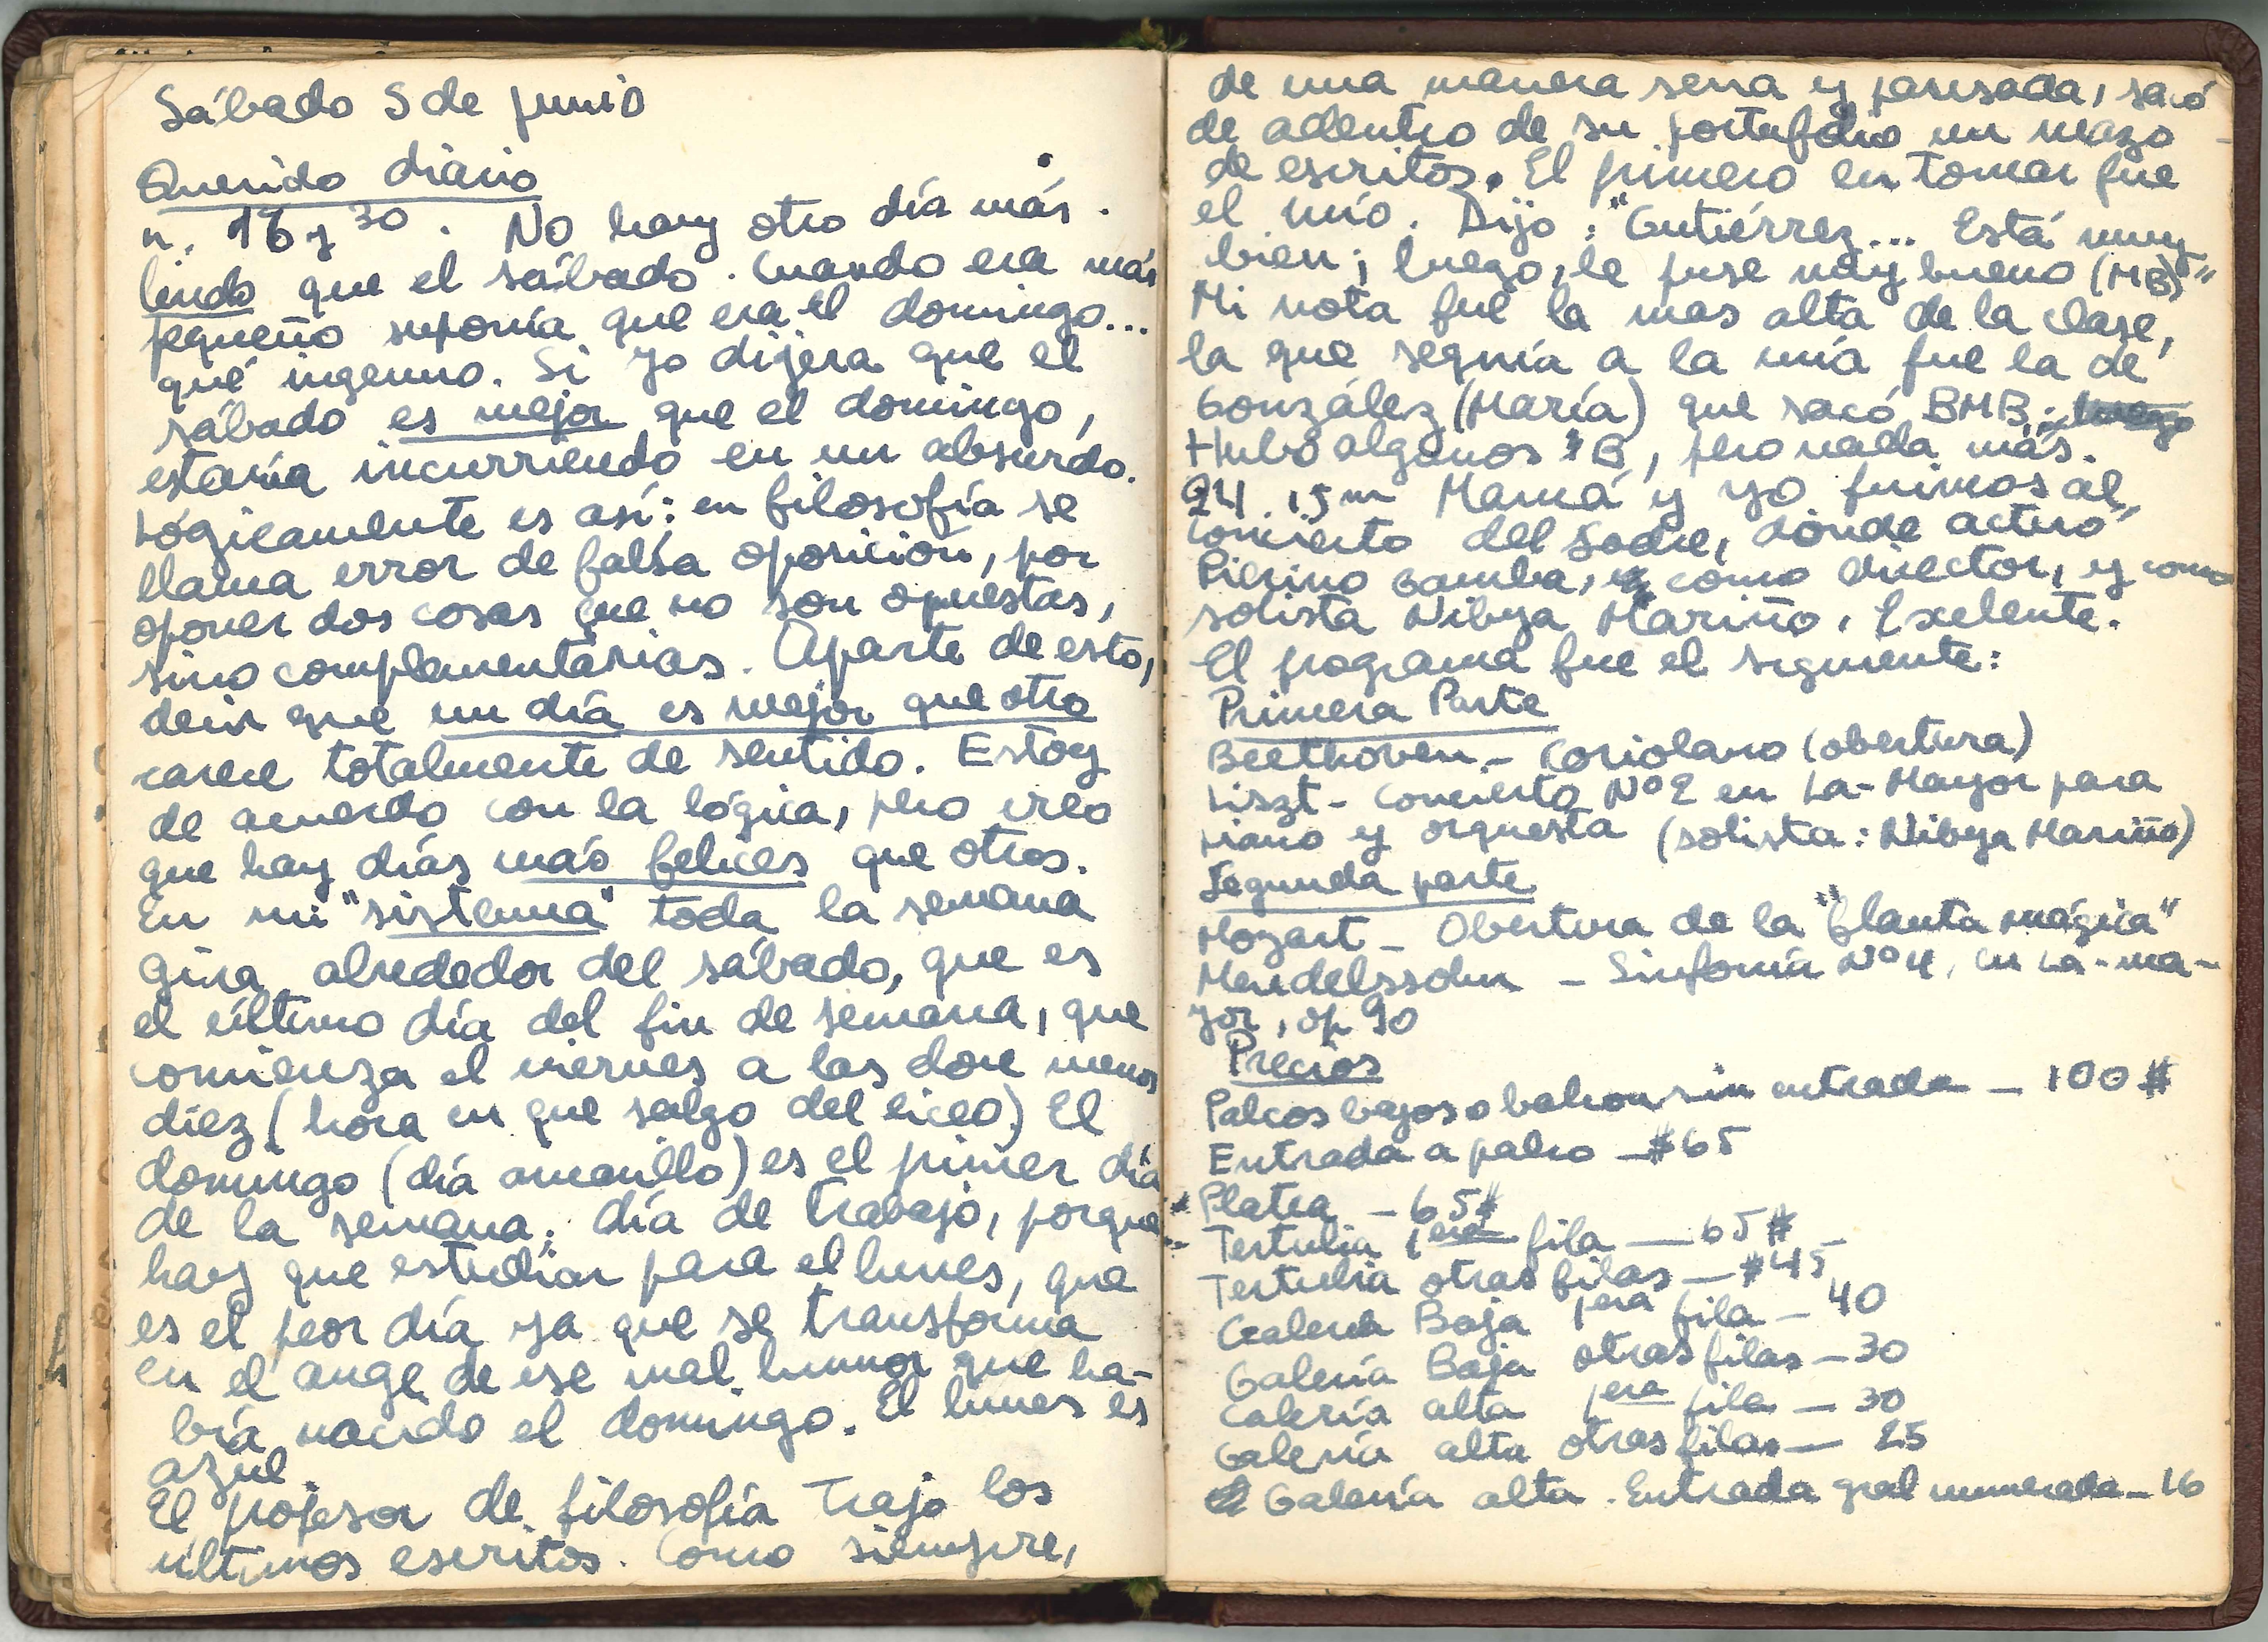 Sábado 5 de junio
Querido diario
n. 16 y 30. No hay otro día más
lindo que el sábado. Cuando era más
pequeño suponía que era el domingo...
qué ingenuo. Si yo dijera que el
sábado es mejor que el domingo,
estaría incurriendo en un absurdo.
Lógicamente es así: en filosofía se
llama error de falsa oposición, por
oponer dos cosas que no son opuestas,
sino complementarias. Aparte de esto,
decir que un día es mejor que otro
carece totalmente de sentido. Estoy
de acuerdo con la lógica, pero creo
que hay días más felices que otros.
En mi "sistema" toda la semana
gira alrededor del sábado, que es
el último día del fin de semana, que
comienza el viernes a las doce menos
diez (hora en que salgo del liceo). El
domingo (día amarillo) es el primer día
de la semana: día de trabajo, porque
hay que estudiar para el lunes, que
es el peor día ya que se transforma
en el auge de ese mal humor que ha-
bía nacido el domingo. El lunes es
azul.
El profesor de filosofía trajo los
últimos escritos. Como siempre,
de una manera seria y pausada, sacó
de adentro de su portafolio un mazo
de escritos. El primero en tomar fue
el mío. Dijo: "Gutiérrez... Está muy
bien; luego, le puse muy bueno (MB)"
Mi nota fue la mas alta de la clase,
la que seguía a la mía fue la de
González (María) que sacó BMB.
Hubo algunos B, pero nada más.
24 15m Mamá y yo fuimos al
concierto del Sodre, donde actuó
Pierino Gamba, como director, y como
solista Nibya Mariño. Exelente.
El programa fue el siguiente:
Primera Parte
Beethoven - Coriolano (obertura)
Liszt - Concierto Nº 2 en La-Mayor para
piano y orquesta (solista: Nibya Mariño)
Segunda parte
Mozart - Obertura de la "flauta mágica"
Mendelssohn - Sinfonía Nº 4, en La-ma-
yor, op 90
Precios
Palcos bajos o balcon sin entrada - 100 $
Entrada a palco - $65
Platea - 65$
Tertulia 1era fila - 65 $
Tertulia otras filas - $45
Galería Baja 1era fila - 40
Galería Baja otras filas - 30
Galería alta 1era fila - 30
Galería alta otras filas - 25
Galería alta. Entrada gral numerada - 16